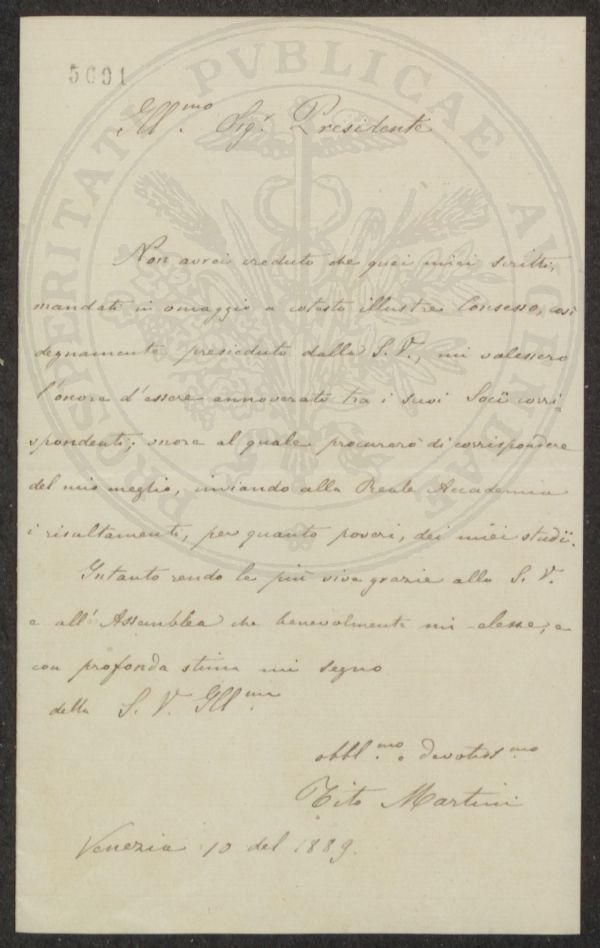 5691
Ill.mo Sig.r Presidente
Non avrei creduto che quei miei scritti,
mandati in omaggio a cotesto illustre Consesso, così
degnamente presieduto dalla S. V., mi valessero
l'onore d'essere annoverato tra i suoi Socii corri-
spondenti; onore al quale procurerò di corrispondere
del mio meglio, inviando alla Reale Accademia
i risultamenti, per quanto poveri, dei miei studii.
Intanto rendo le più vive grazie alla S. V.
e all'Assemblea che benevolmente mi elesse, e
con profonda stima mi segno
della S. V. Ill.ma
obbl.mo e devotiss.mo
Tito Martini
Venezia 10 del 1889.
PROSPERITATI PVBLICAE AVGENDAE